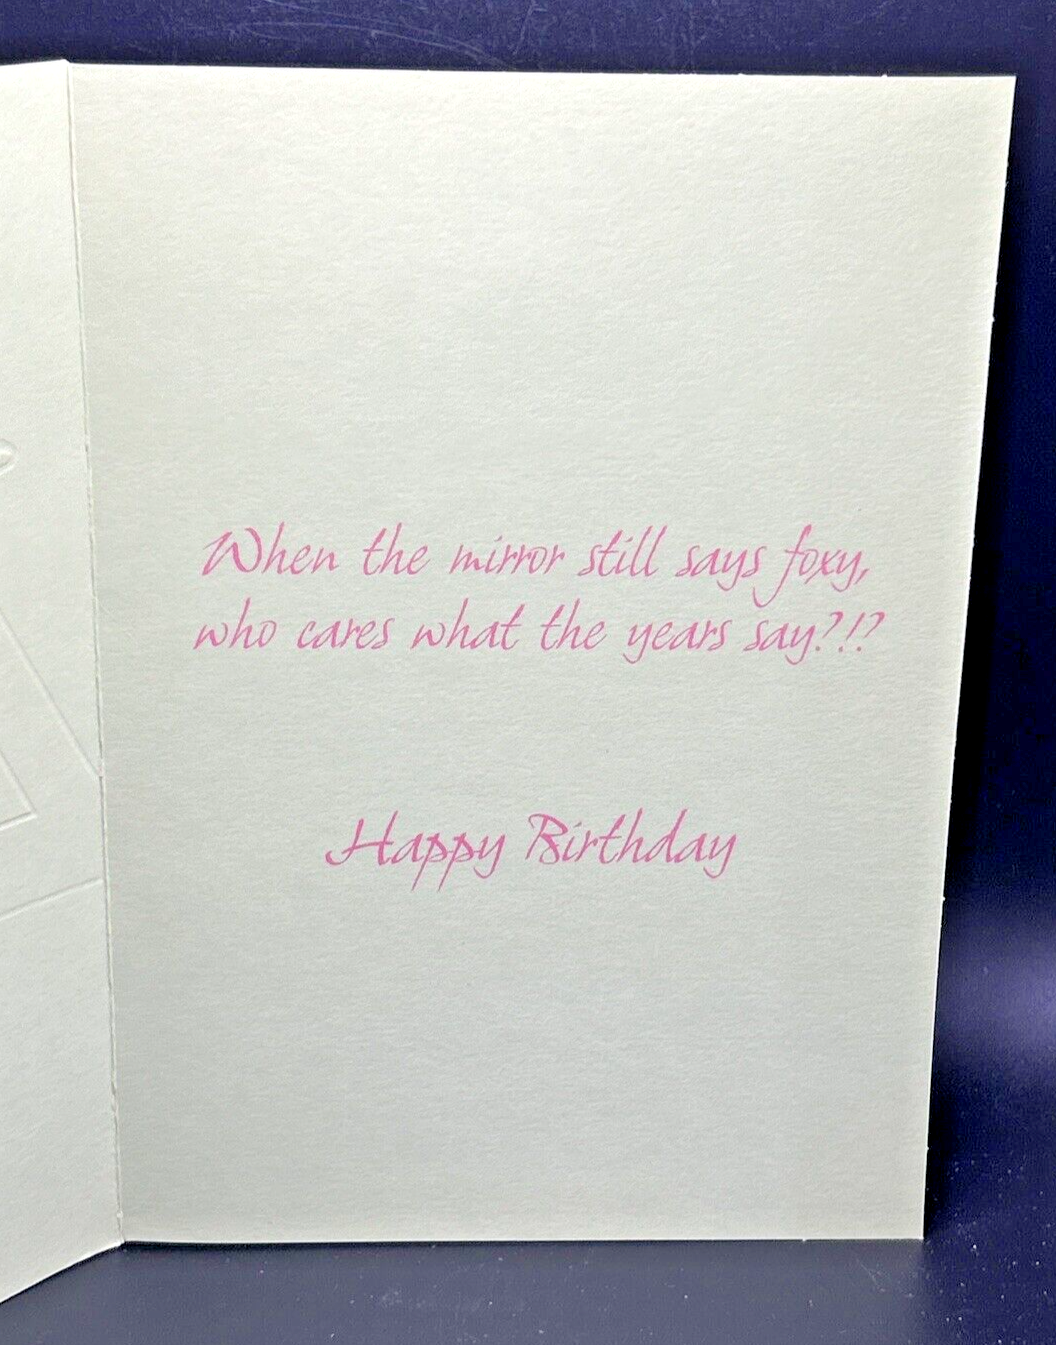 When the mirror still says foxy,
who cares what the years say?!?
Happy Birthday